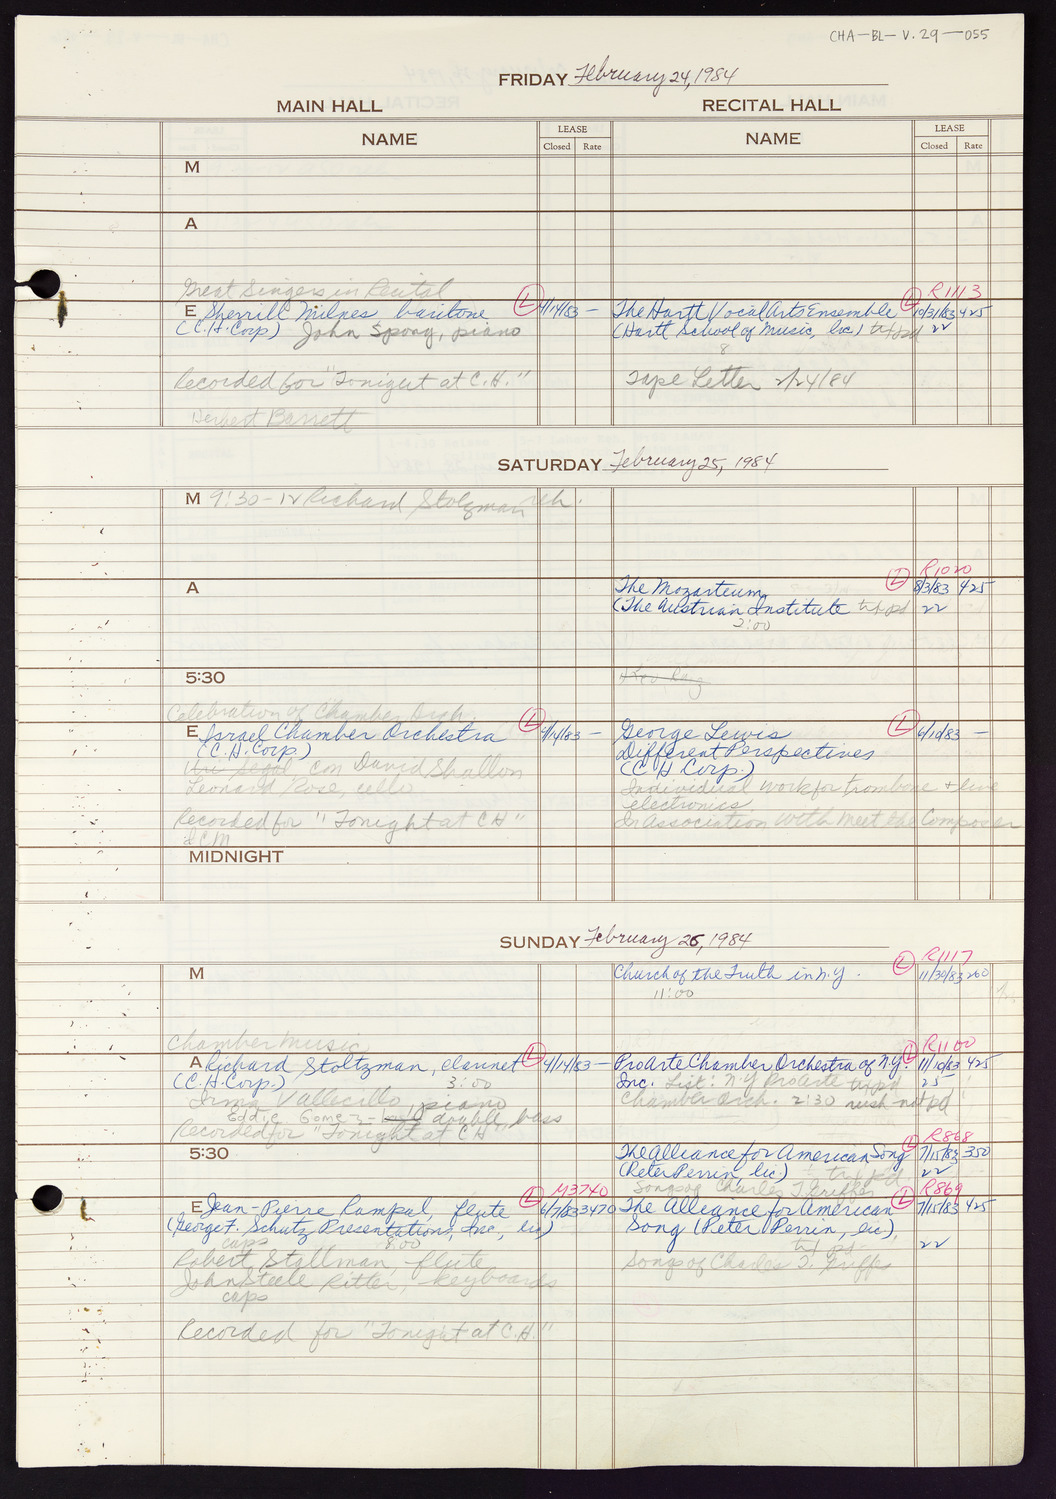 CHA-BL-V.29-055
FRIDAY February 24, 1984
MAIN HALL
RECITAL HALL
NAME
LEASE
Closed Rate
NAME
LEASE
Closed Rate
M
A
Great Singers in Recital
E Sherrill Milnes, baritone L 4/14/83 -
(C.H. Corp) John Spong, piano
Recorded for "Tonight at C.H."
Herbert Barrett
L R1113
The Hartt Vocal Arts Ensemble 10/31/83 425
(Hartt School of Music, lic) txt pd 22
8
Tape Letter 2/24/84
SATURDAY February 25, 1984
M 9:30-12 Richard Stolzman reh.
A
L R1020
The Mozarteum 8/3/83 425
(The Austrian Institute txt pd 22
2:00
5:30
Celebration of Chamber Orch.
E Israel Chamber Orchestra L 4/14/83 -
(C.H. Corp.)
Uri Segal con David Shallon
Leonard Rose, cello
Recorded for "Tonight at CH"
ICM
George Lewis L 6/10/83 -
Different Perspectives
(C H Corp.)
Individual work for trombone + live
electronics
In association with Meet the Composer
MIDNIGHT
SUNDAY February 26, 1984
M
L R1117
Church of the Truth in N.Y. 11/30/83 260
11:00
Chamber Music
A Richard Stoltzman, clarinet L 4/14/83 -
(C.H. Corp.) 3:00
Irma Vallecillo, piano
Eddie Gomez- double bass
Recorded for "Tonight at CH"
L R1100
Pro Arte Chamber Orchestra of N.Y. 11/10/83 425
Inc. List: N.Y Pro Arte txt pd 25
Chamber Orch. 2:30 rush not pd
5:30
L R868
The Alliance for American Song 7/15/83 350
(Peter Perrin, lic) txt pd 22
Songs of Charles T. Griffes
L M3740
E Jean-Pierre Rampal, flute 6/7/83 3470
(George F. Schutz Presentations, Inc, lic)
caps 8:00
Robert Stallman, flute
John Steele Ritter, keyboards
caps
Recorded for "Tonight at C.H."
L R869
The Alliance for American 7/15/83 425
Song (Peter Perrin, lic),
txt pd 22
Songs of Charles T. Griffes